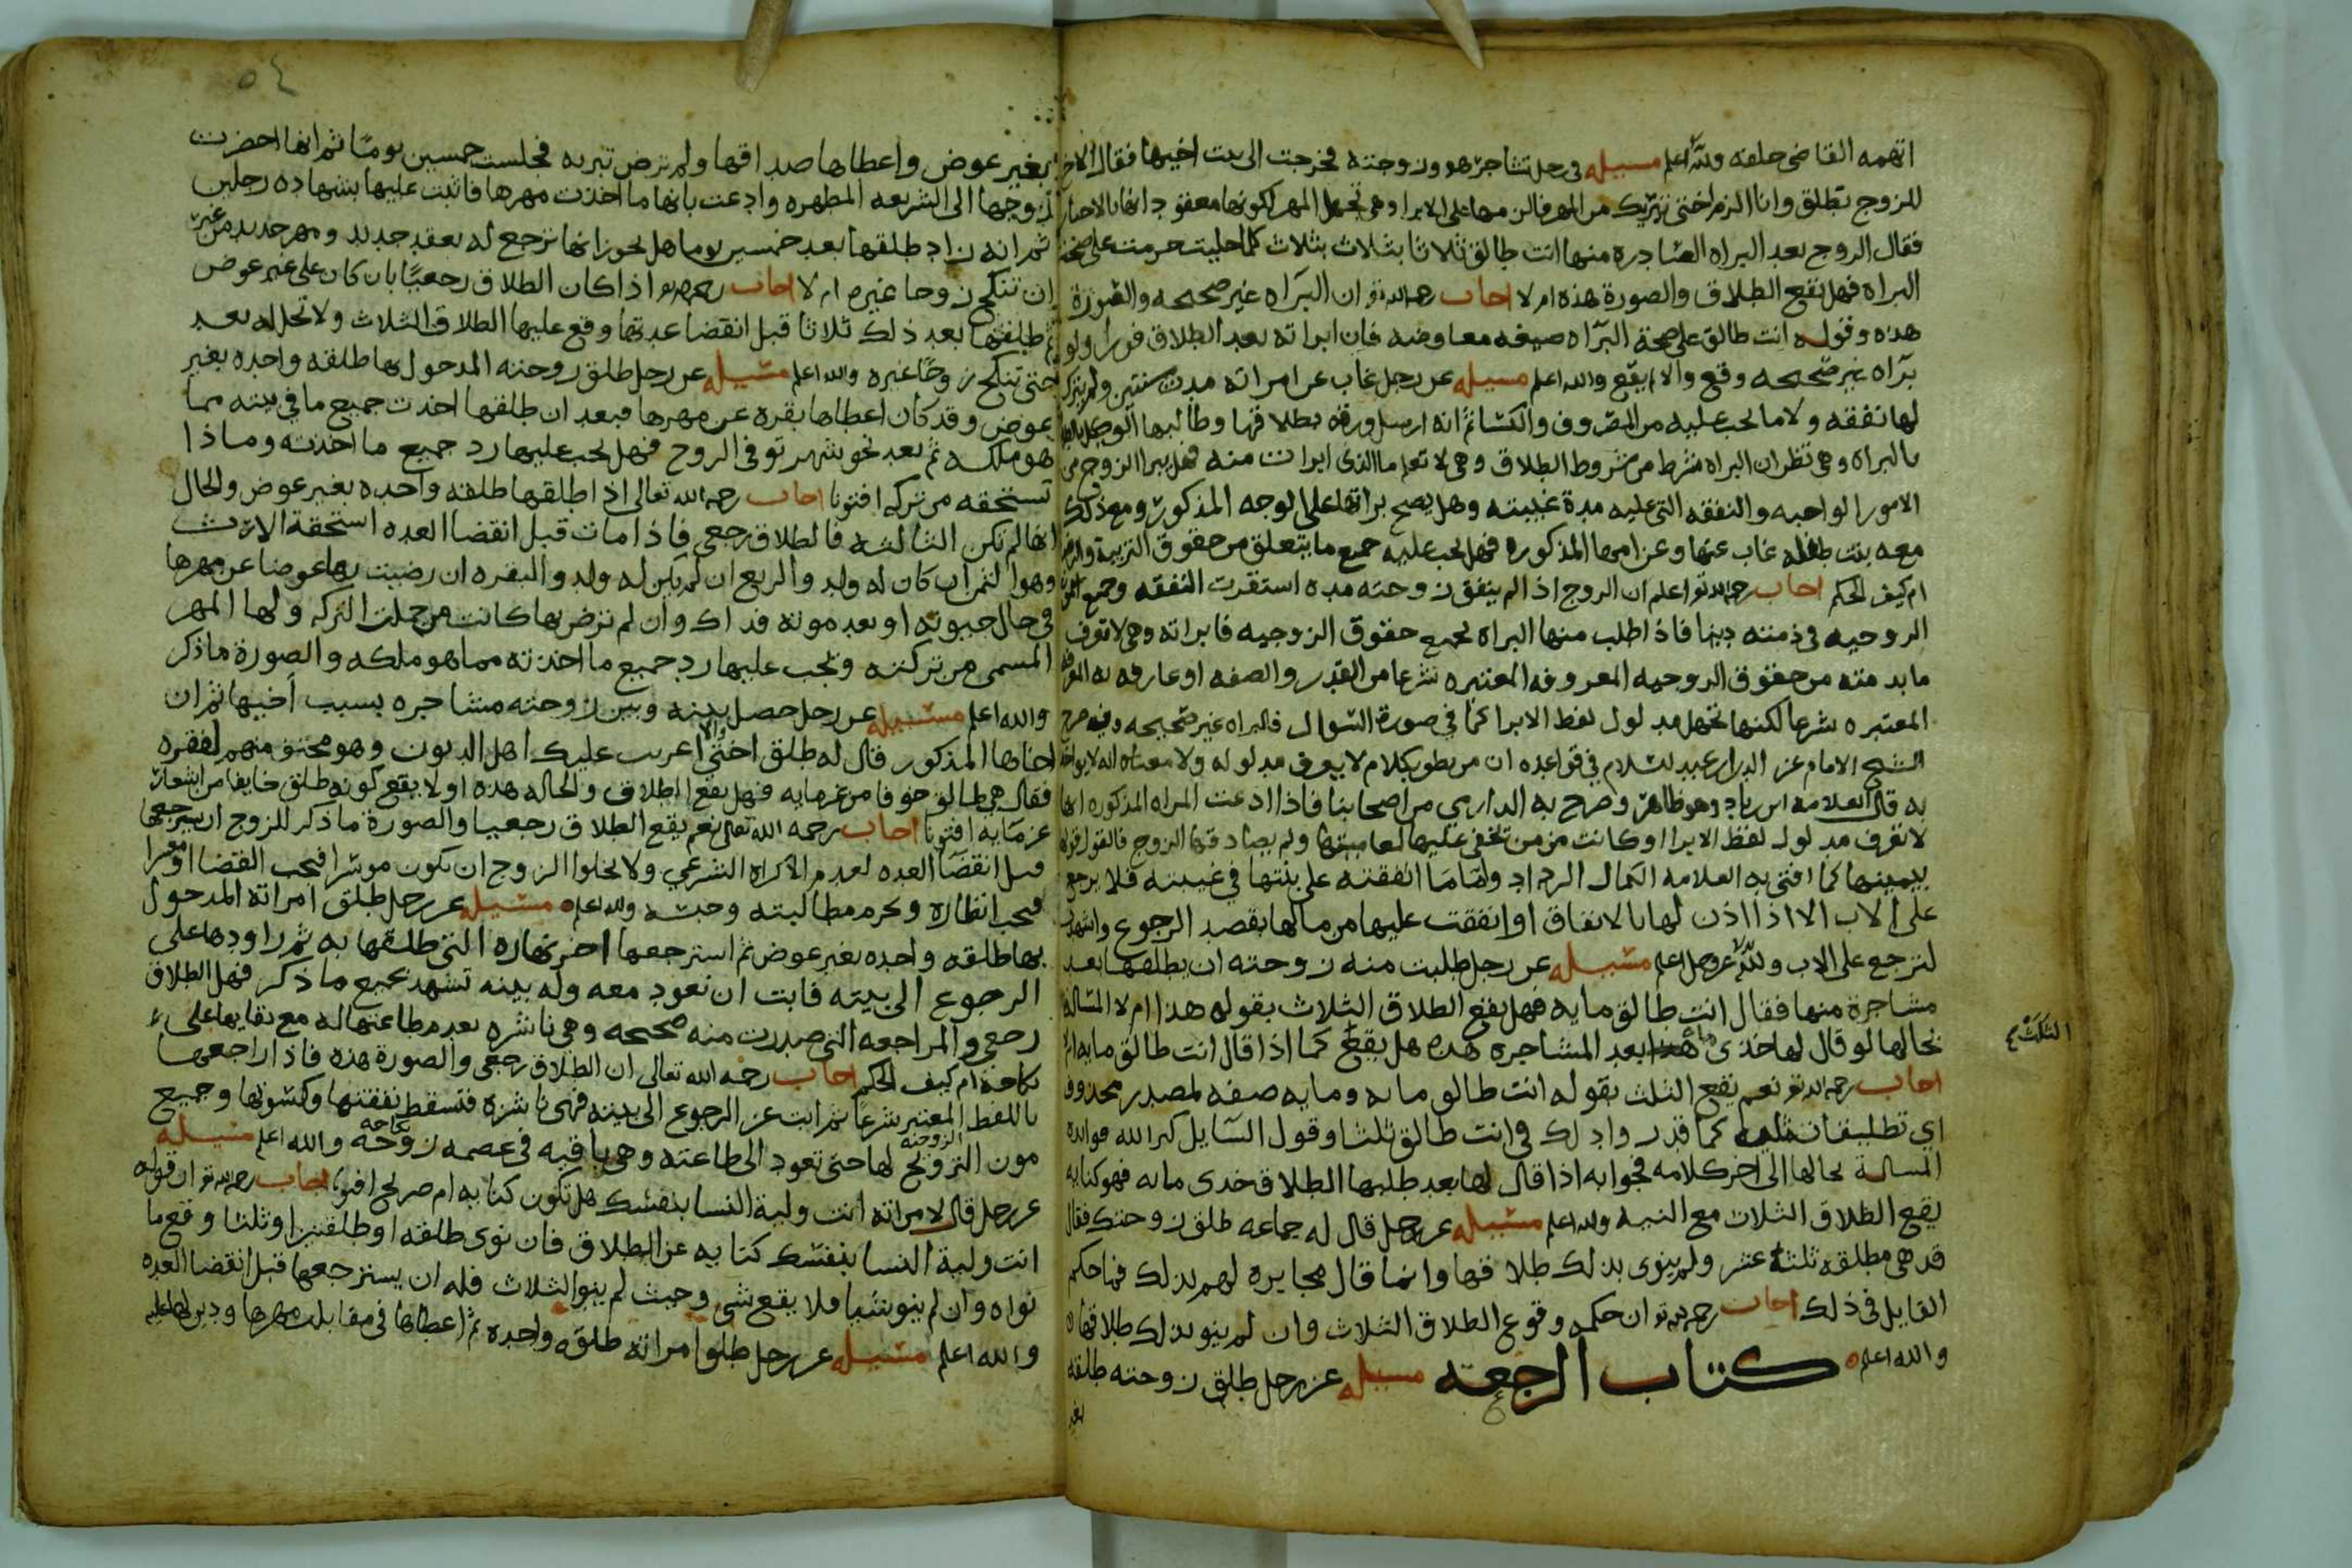 اتهمه القاضي حلفه والله اعلم مسيله في رجل تشاجر هو وزوجته فخرجت الى بيت اخيها فقال الاخ
للزوج تطلق وانا الزم اختي تبريك من المهر فالزمها على الابرا وهي تجهل المهر لكونها معقود انها بالاجبار
فقال الزوج بعد البراه الصادره منها انت طالق ثلاثا بثلاث بثلاث كلما حليت حرمت على صحة
البراه فهل يقع الطلاق والصورة هذه ام لا اجاب رحمه الله تع ان البرآه غير صحيحه والصورة
هذه وقوله انت طالق على صحة البرآه صيغه معاوضه فان ابراته بعد الطلاق فورا ولو
برآه غير صحيحه وقع والا لم يقع والله اعلم مسيله عن رجل غاب عن امراته مدت سنتين ولم يترك
لها نفقه ولا ما يجب عليه من المصروف والكسا ثم انه ارسل ورقه بطلاقها وطالبها الوكيل
بالبراه وهي تظن ان البراه شرط من شروط الطلاق وهي لا تعلم ما الذي ابرات منه فهل يبرا الزوج من
الامور الواجبه والنفقه التي عليه مدة غيبته وهل يصح براتها على الوجه المذكور ومع ذلك
معه بنت طفله غاب عنها وعن امها المذكوره فهل يجب عليه جميع ما يتعلق من حقوق التربية
ام كيف الحكم اجاب رحمه الله تع اعلم ان الزوج اذا لم ينفق زوجته مده استقرت النفقه وجميع
الزوجيه في ذمته دينا فاذا طلب منها البراه لجميع حقوق الزوجيه فابراته وهي لا تعرف
ما بذمته من حقوق الزوجيه المعروفه المعتبره شرعا من القدر والصفه او عارفه به المعرفه
المعتبره شرعا لكنها تجهل مدلول لفظ الابرا كما في صورة السوال فالبراه غير صحيحه وقد صرح
الشيخ الامام عز الدين ابن عبد السلام في قواعده ان من نطق بكلام لا يعرف مدلوله ولا معناه انه لا يواخذ
به قال العلامه ابن زياد وهو ظاهر وصرح به الدارمي من اصحابنا فاذا ادعت المراه المذكوره انها
لا تعرف مدلول لفظ الابرا وكانت ممن تخفى عليها لعاميتها ولم يصادقها الزوج فالقول قولها
بيمينها كما افتى به العلامه الكمال الرداد واما ما انفقته على بنتها في غيبته فلا يرجع
على الاب الا اذا اذن لها بالانفاق او انفقت عليها من مالها بقصد الرجوع واشهدت
لترجع على الاب والله عز وجل اعلم مسيله عن رجل طلبت منه زوجته ان يطلقها بعد
مشاجرة منها فقال انت طالق مايه فهل يقع الطلاق الثلاث بقوله هذا ام لا المسالة
بحالها لو قال لها خذي مايه بعد المشاجره هذه هل يقع كما اذا قال انت طالق مايه ام لا
الثلث ع
اجاب رحمه الله تع نعم يقع الثلث بقوله انت طالق مايه ومايه صفه لمصدر محذوف
اي تطليقات مايه كما قدر واذلك في انت طالق ثلثا وقول السايل كبر الله فوايده
المسالة بحالها الى اخر كلامه فجوابه اذا قال لها بعد طلبها الطلاق خذي مايه فهو كنايه
يقع الطلاق الثلاث مع النيه والله اعلم مسيله عن رجل قال له جماعه طلق زوجتك فقال
قد هي مطلقه ثلثة عشر ولم ينوي بذلك طلاقها وانما قال مجابره لهم بذلك فما حكم
القايل في ذلك اجاب رحمه الله تع ان حكمه وقوع الطلاق الثلاث وان لم ينو بذلك طلاقها
والله اعلم كتاب الرجعة مسيله عن رجل طلق زوجته طلقه
بغير
٥٤
بغير عوض واعطاها صداقها ولم ترض تبريه فجلست خمسين يومًا ثم انها احضرت
زوجها الى الشريعه المطهره وادعت بانها ما اخذت مهرها فاثبت عليها بشهاده رجلين
ثم انه زاد طلقها بعد خمسين يوما هل يجوز انها ترجع له بعقد جديد ومهر جديد من غير
ان تنكح زوجا غيره ام لا اجاب رحمه الله تع اذا كان الطلاق رجعيًا بان كان على غير عوض
ثم طلقها بعد ذلك ثلاثا قبل انقضا عدتها وقع عليها الطلاق الثلاث ولا تحل له بعد
حتى تنكح زوجًا غيره والله اعلم مسيله عن رجل طلق زوجته المدخول بها طلقه واحده بغير
عوض وقد كان اعطاها بقره عن مهرها فبعد ان طلقها اخذت جميع ما في بيته مما
هو ملكه ثم بعد نحو شهر توفي الزوج فهل يجب عليها رد جميع ما اخذته وماذا
تستحقه من تركه افتونا اجاب رحمه الله تعالى اذا طلقها طلقه واحده بغير عوض والحال
انها لم تكن الثالثه فالطلاق رجعي فاذا مات قبل انقضا العده استحقة الارث
وهو الثمن ان كان له ولد والربع ان لم يكن له ولد والبقره ان رضيت بها عوضا عن مهرها
في حال حيوته او بعد موته فذاك وان لم ترض بها كانت من جملت التركه ولها المهر
المسمى من تركته ويجب عليها رد جميع ما اخذته مما هو ملكه والصورة ما ذكر
والله اعلم مسيله عن رجل حصل بينه وبين زوجته مشاجره بسبب اخيها ثم ان
اخاها المذكور قال له طلق اختي والا اعرب عليك اهل الديون وهو مختف منهم لفقره
فقال هي طالق خوفا من غرمايه فهل يقع الطلاق والحاله هذه او لا يقع كونه طلق خايفا من اشعار
غرمايه افتونا اجاب رحمه الله تعالى نعم يقع الطلاق رجعيا والصورة ما ذكر للزوج ان يسترجعها
قبل انقضا العده لعدم الاكراه الشرعي ولا يخلوا الزوج ان يكون موسرا فيجب القضا او معسرا
فيجب انظاره ويحرم مطالبته وحبسه والله اعلم مسيله عن رجل طلق امراته المدخول
بها طلقه واحده بغير عوض ثم استرجعها اخر نهاره التي طلقها به ثم راودها على
الرجوع الى بيته فابت ان تعود معه وله بينه تشهد بجميع ما ذكر فهل الطلاق
رجعي والمراجعه التي صدرت منه صحيحه وهي ناشزه بعدم طاعتها له مع بقايها على
نكاحه ام كيف الحكم اجاب رحمه الله تعالى ان الطلاق رجعي والصورة هذه فاذا راجعها
باللفظ المعتبر شرعًا ثم ابت عن الرجوع الى بيته فهي ناشزه فتسقط نفقتها وكسوتها وجميع
مون التزويج الزوجيه لها حتى تعود الى طاعته وهي باقيه في عصمه زوجه نكاحه والله اعلم مسيله
عن رجل قال لامراته انت ولية النسا بنفسك هل تكون كنايه ام صريح افتونا اجاب رحمه الله تع ان قوله
انت ولية النسا بنفسك كنايه عن الطلاق فان نوى طلقه او طلقتين او ثلثا وقع ما
نواه وان لم ينو شيا فلا يقع شي وحيث لم ينو الثلاث فله ان يسترجعها قبل انقضا العده
والله اعلم مسيله عن رجل طلق امراته طلقه واحده ثم اعطاها في مقابلت مهرها ودين لها عليه